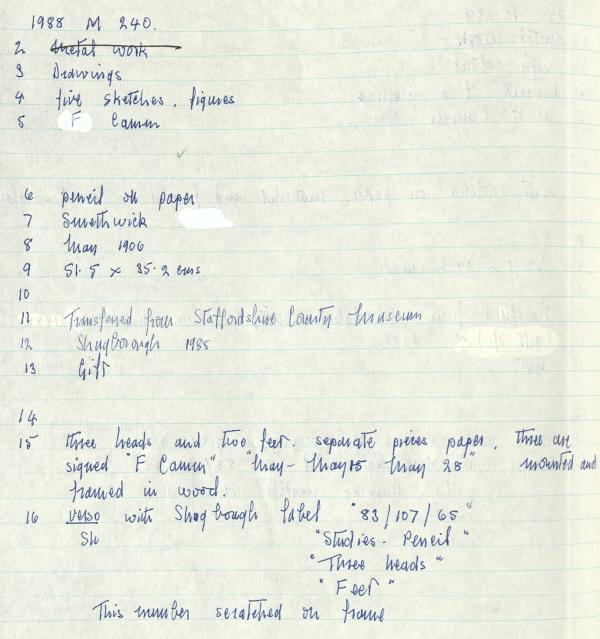 1988 M 240.
2 Metal work
3 Drawings
4 five sketches. figures
5 F Camm
6 pencil on paper
7 Smethwick
8 May 1906
9 51.5 x 35.2 cms
10
11 Transferred from Staffordshire County Museum
12 Shugborough 1985
13 Gift
14
15 three heads and two feet. separate pieces paper. three are
signed "F Camm" "May - May 15 May 28" mounted and
framed in wood.
16 verso with Shugborough label "83/107/65"
Sh "Studies - Pencil"
"Three heads"
"Feet"
This number scratched on frame